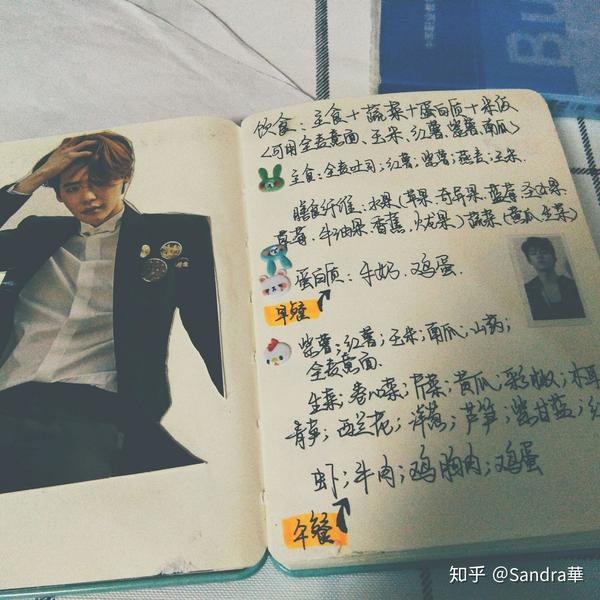 饮食：主食+蔬菜+蛋白质+米饭
（可用全麦意面、玉米、红薯、紫薯、南瓜）
主食：全麦吐司；红薯；紫薯；燕麦；玉米.
膳食纤维：水果（苹果.奇异果.蓝莓.圣女果.
草莓.牛油果.香蕉.火龙果）蔬菜（黄瓜.生菜）
蛋白质：牛奶.鸡蛋.
早餐
紫薯；红薯；玉米；南瓜；山药；
全麦意面.
生菜；卷心菜；芹菜；黄瓜；彩椒；木耳
西兰花；洋葱；芦笋；紫甘蓝；
虾；牛肉；鸡胸肉；鸡蛋
午餐
知乎 @Sandra華